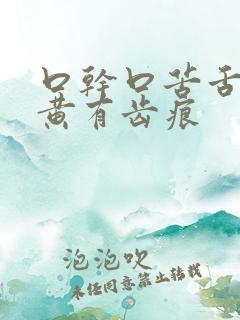 口幹口苦舌
黄有齿痕
泡泡吹
未经同意禁止转载